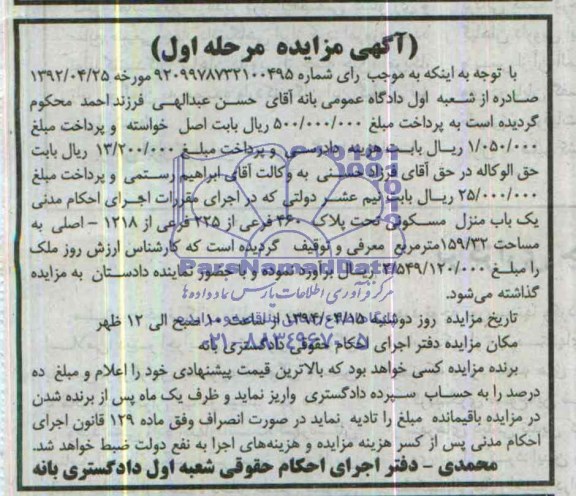 (آگهی مزایده مرحله اول)
با توجه به اینکه به موجب رای شماره ۹۲۰۹۹۷۸۷۳۲۱۰۰۴۹۵ مورخه ۱۳۹۲/۰۴/۲۵
صادره از شعبه اول دادگاه عمومی بانه آقای حسن عبدالهی فرزند احمد محکوم
گردیده است به پرداخت مبلغ ۵۰۰/۰۰۰/۰۰۰ ریال بابت اصل خواسته و پرداخت مبلغ
۱/۰۵۰/۰۰۰ ریال بابت هزینه دادرسی و پرداخت مبلغ ۱۳/۲۰۰/۰۰۰ ریال بابت
حق الوکاله در حق آقای فرزاد حسنی به وکالت آقای ابراهیم رستمی و پرداخت مبلغ
۲۵/۰۰۰/۰۰۰ ریال بابت نیم عشر دولتی که در اجرای مقررات اجرای احکام مدنی
یک باب منزل مسکونی تحت پلاک ۳۶۰ فرعی از ۲۲۵ فرعی از ۱۲۱۸ - اصلی به
مساحت ۱۵۹/۳۲مترمربع معرفی و توقیف گردیده است که کارشناس ارزش روز ملک
را مبلغ ۲/۵۴۹/۱۲۰/۰۰۰ ریال برآورد نموده و با حضور نماینده دادستان به مزایده
ParsNamadData
مرکز فرآوری اطلاعات پارس نماد داده ها
گذاشته می‌شود.
تاریخ مزایده روز دوشنبه ۱۳۹۴/۰۴/۱۵ از ساعت ۱۰ صبح الی ۱۲ ظهر
مکان مزایده دفتر اجرای احکام حقوقی دادگستری بانه
۰۲۱-۸۸۳۴۹۶۷۰-۵
برنده مزایده کسی خواهد بود که بالاترین قیمت پیشنهادی خود را اعلام و مبلغ ده
درصد را به حساب سپرده دادگستری واریز نماید و ظرف یک ماه پس از برنده شدن
در مزایده باقیمانده مبلغ را تادیه نماید در صورت انصراف وفق ماده ۱۲۹ قانون اجرای
احکام مدنی پس از کسر هزینه مزایده و هزینه‌های اجرا به نفع دولت ضبط خواهد شد.
محمدی - دفتر اجرای احکام حقوقی شعبه اول دادگستری بانه